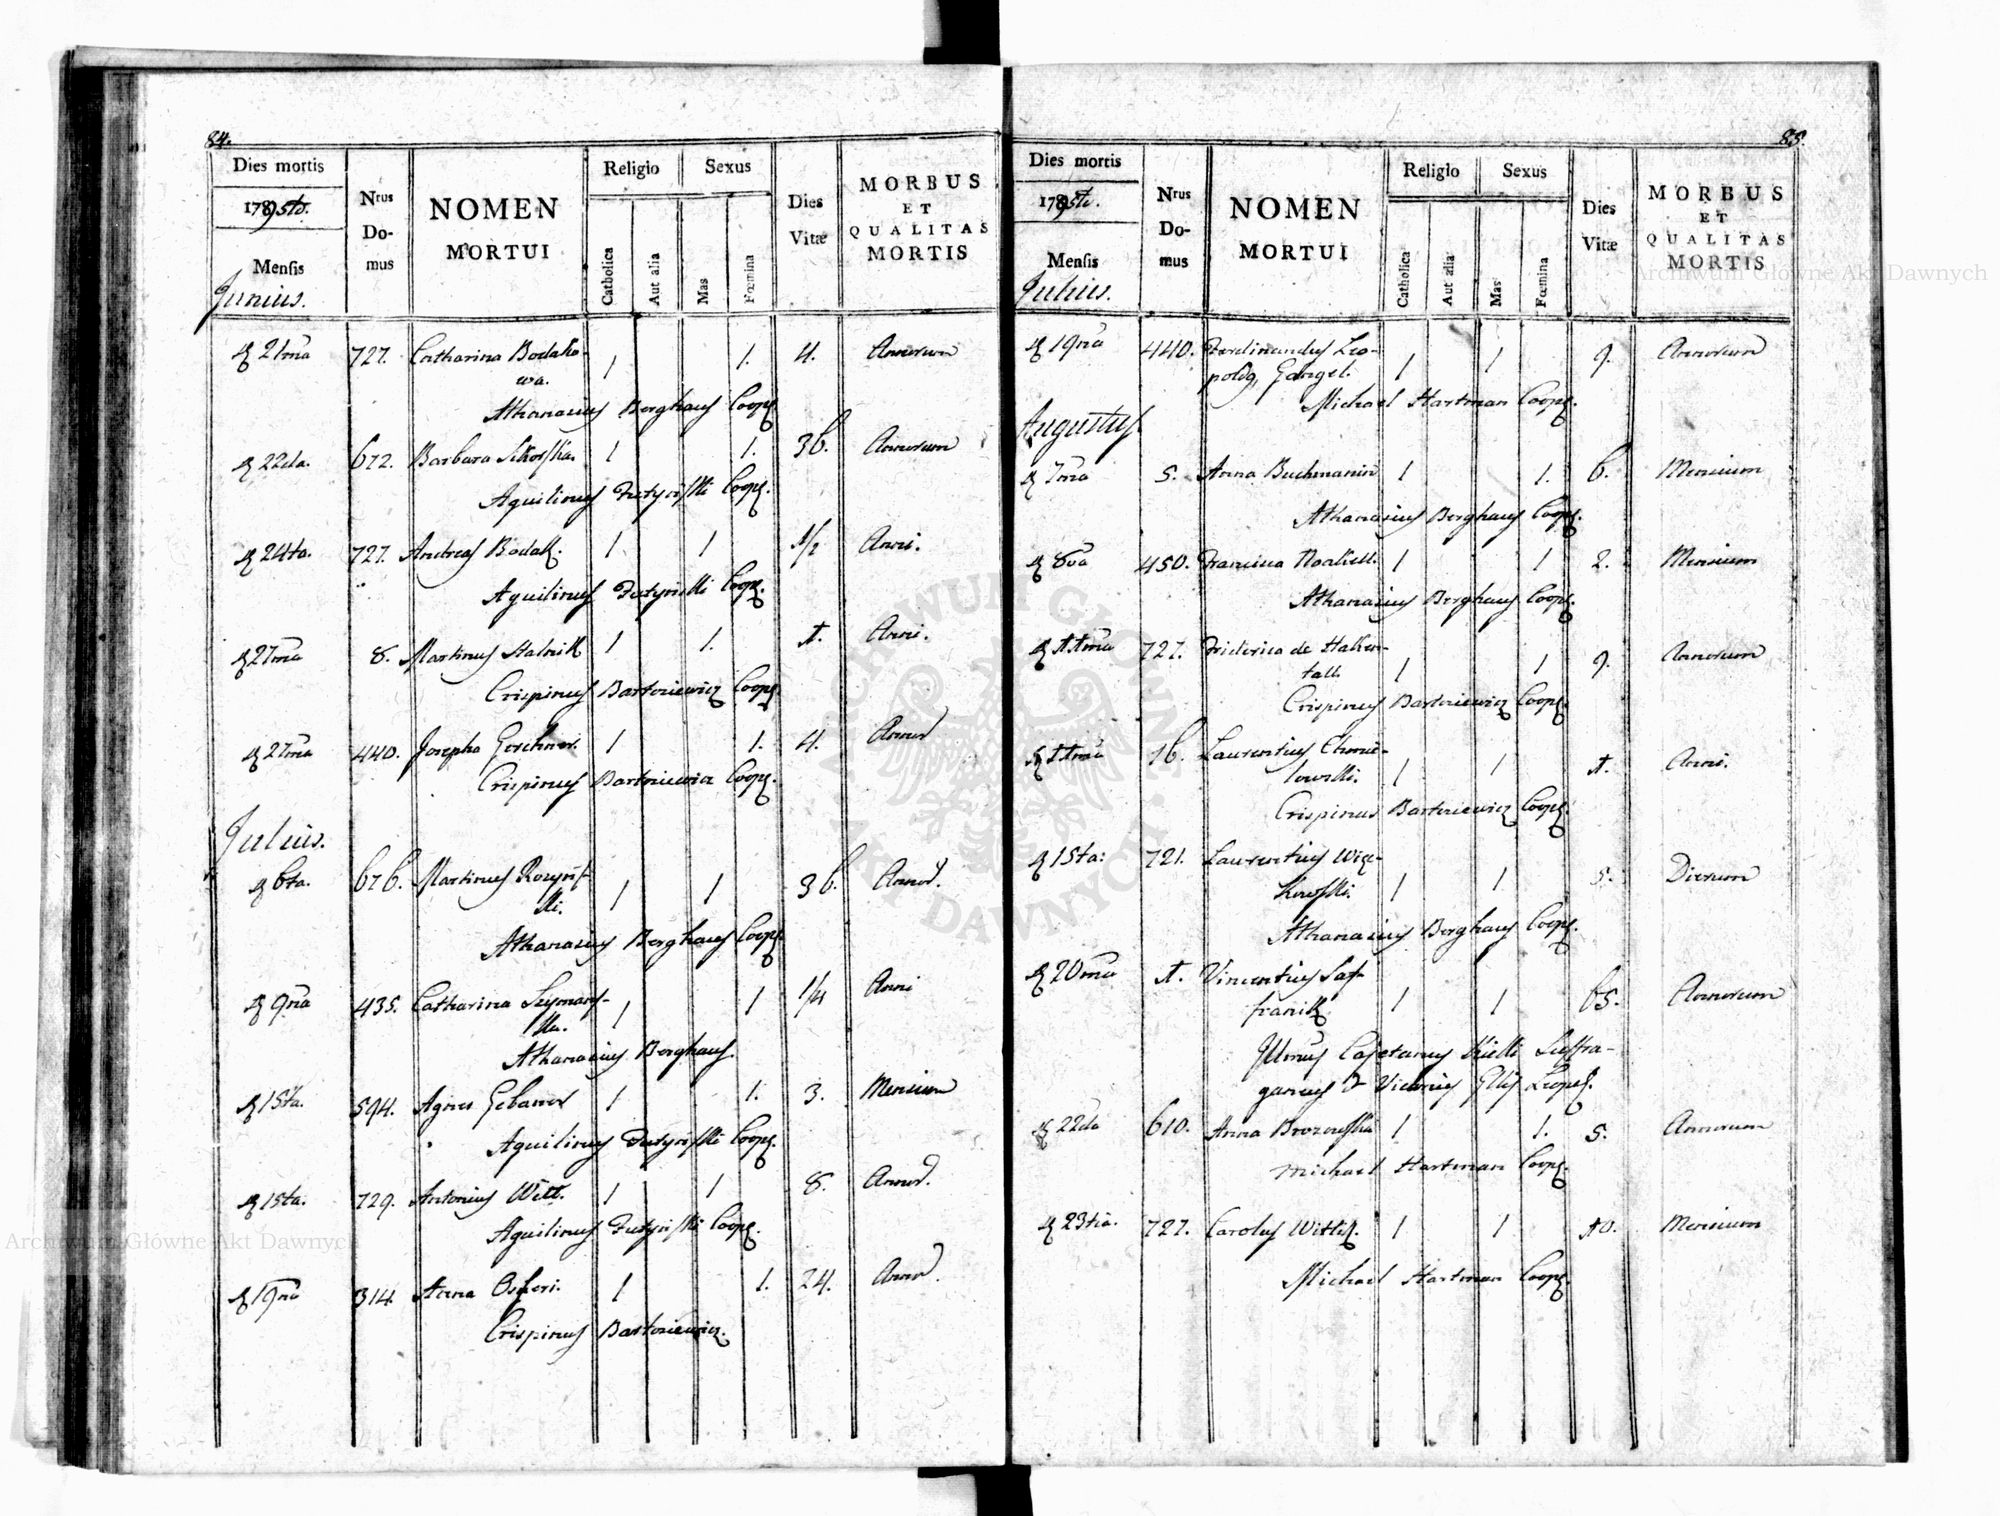 84.
Dies mortis
1795to.
Mensis
Junius.
Nrus Domus
NOMEN MORTUI
Religio
Catholica
Aut alia
Sexus
Mas
Fœmina
Dies Vitæ
MORBUS ET QUALITAS MORTIS
21ma 727. Catharina Bodako- 1 1. 4. Annorum
wa.
Athanasius Berghaus Coop.
22da. 672. Barbara Sikorska. 1 1. 36. Annorum
Aquilinus Coop.
24ta. 727. Andreas Bodak. 1 1 1/2 Anni.
Aquilinus Coop.
27ma 8. Martinus Halnik 1 1. 1. Anni.
Crispinus Bartoniewicz Coop.
27ma 440. Josepha 1 1. 4. Annor
Crispinus Bartoniewicz Coop.
Julius.
6ta. 676. Martinus Rozyns- 1 1 36. Annor.
ki.
Athanasius Berghaus Coop.
9na 435. Catharina Szymans- 1 1 1/4 Anni
ka.
Athanasius Berghaus.
15ta. 594. Agnes Gebauer 1 1. 3. Mensium
Aquilinus Coop.
15ta. 729. Antonius Witt. 1 1 8. Annor.
Aquilinus Coop.
19na 314. Anna 1 1. 24. Annor.
Crispinus Bartoniewicz.
85.
Dies mortis
1795to.
Mensis
Julius.
Nrus Domus
NOMEN MORTUI
Religio
Catholica
Aut alia
Sexus
Mas
Fœmina
Dies Vitæ
MORBUS ET QUALITAS MORTIS
19na 440. Ferdinandus Leo- 1 1 9. Annorum
poldg Gangel.
Michael Hartman Coop.
Augustus.
7ma 5. Anna Buchmanin 1 1. 6. Mensium
Athanasius Berghaus Coop.
8va 450. 1 1 2. Mensium
Athanasius Berghaus Coop.
11ma 727. Friderica de Haken- 1 1 9. Annorum
tall.
Crispinus Bartoniewicz Coop.
11ma 16. Laurentius Chmie- 1 1 1. Anni.
lowski.
Crispinus Bartoniewicz Coop.
15ta: 721. Laurentius Wię- 1 1 5. Dierum
kowski.
Athanasius Berghaus Coop.
20ma 1. Vincentius Saf- 1 1 65. Annorum
franik
Illmus Cajetanus Kicki Suffra-
ganeus & Vicarius Glis Leopol.
22da 610. Anna Brozowska 1 1. 5. Annorum
Michael Hartman Coop.
23tia. 727. Carolus Wittig. 1 1 10. Mensium
Michael Hartman Coop.
ARCHIWUM GŁÓWNE AKT DAWNYCH
Archiwum Główne Akt Dawnych
Archiwum Główne Akt Dawnych